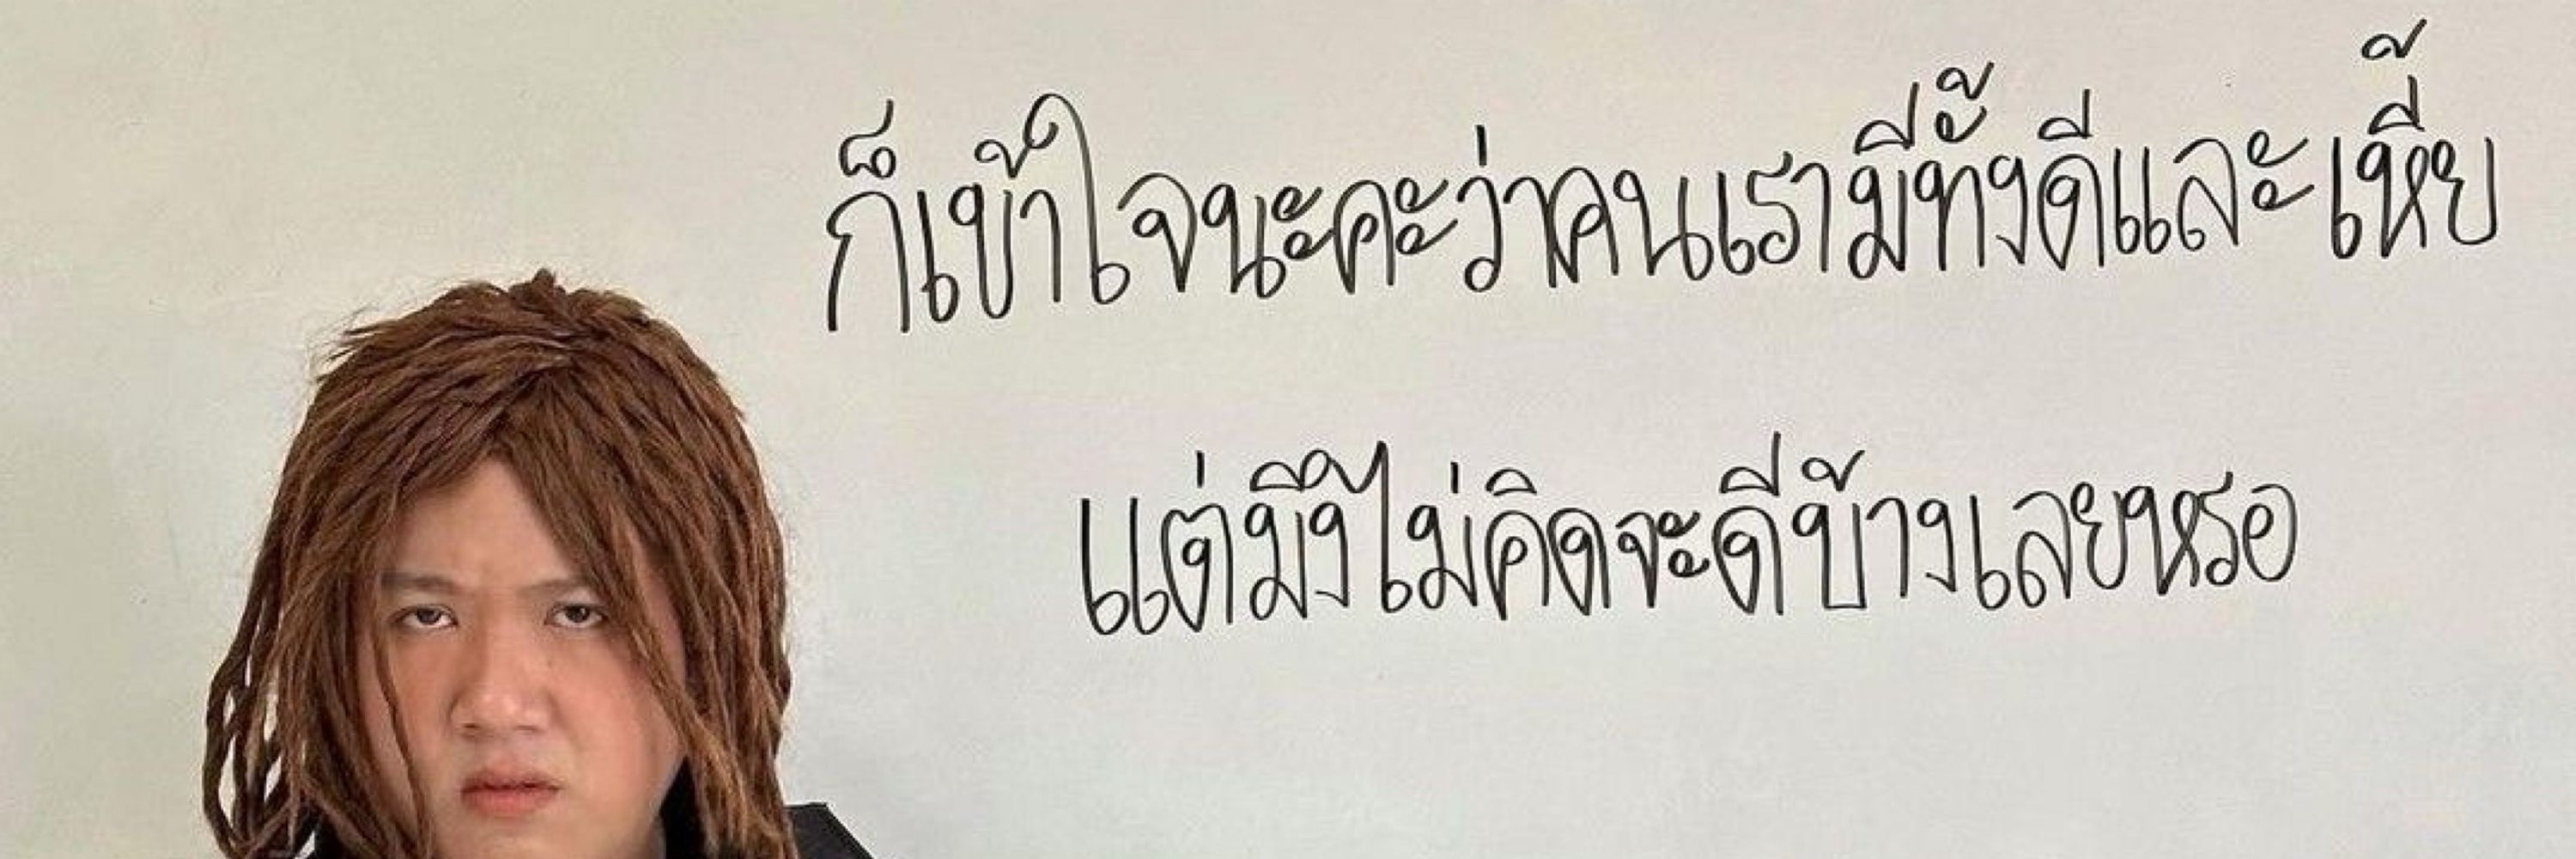 ก็เข้าใจนะคะว่าคนเรามีทั้งดีและเหี้ย
แต่มึงไม่คิดจะดีบ้างเลยหรอ